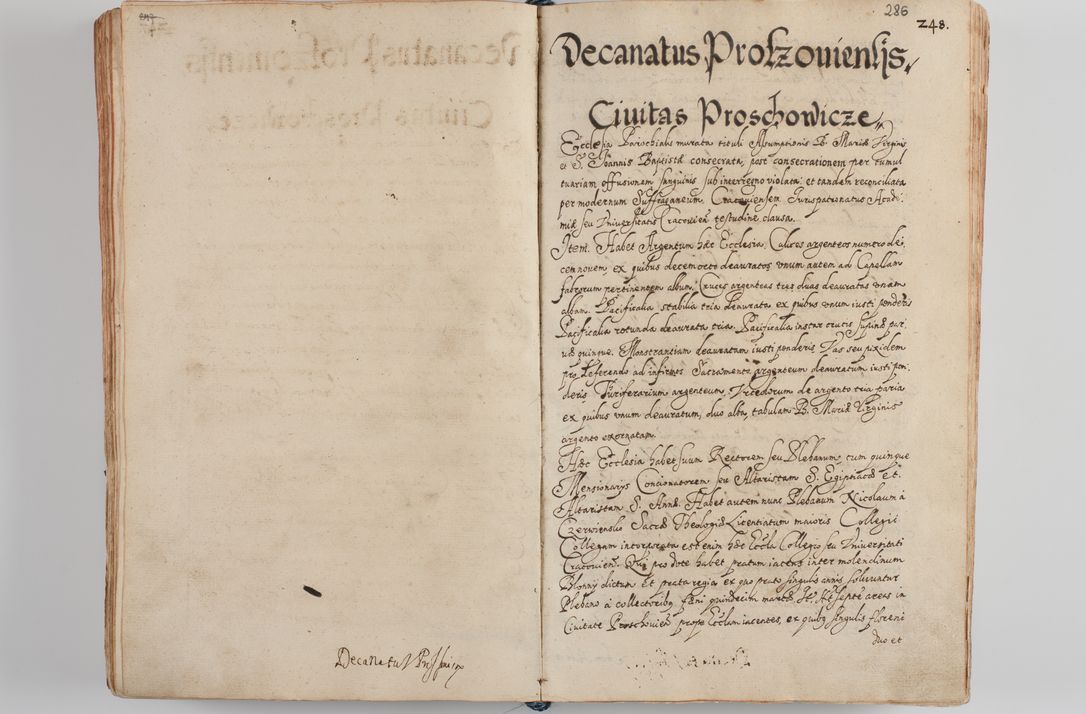 247
Decanatus
286
248.
Decanatus Proszouiensis
Ciuitas Proschowicze
Ecclesia Parochialis murata tituli Assumptionis B. Mariæ Virginis
et S. Joannis Baptistæ consecrata, post consecrationem per tumul
tuariam effusionem sanguinis sub interregno violata: et tandem reconciliata
per modernum Suffraganeum Cracouiensem Jurispatronatus Acade:
miæ seu Vniuersitatis Cracouien testudine clausa.
Item. Habet Argentum hæc Ecclesia, Calices argenteos numero de:
cem nouem, ex quibus decem octo deauratos vnum autem ad Capellam
fabrorum pertinentem album. Cruces argenteas tres, duas deauratas vnam
albam. Pacificalia stabilia tria deaurata ex quibus vnum iusti ponderis
Pacificalia rotunda deaurata tria Pacificalia instar crucis supinæ par:
uæ quinque. Monstrantiam deauratam iusti ponderis Vas seu pixidem
pro deferendo ad infirmos Sacramento argenteum deauratum iusti pon:
deris Turiferarium argenteum, Vrceolorum de argento tria paria
ex quibus vnum deauratum, duo alba, tabulam B. Mariæ Virginis
argento exornatam.
Hæc Ecclesia habet suum Rectorem seu Plebanum cum quinque
Mensionarys Concionatorem seu Altaristam S. Egiptiacæ et
Altaristam S. Annæ. Habet autem nunc Plebanum Nicolaum á
Czerwiensko Sacræ Theologiæ Licentiatum maioris Collegii
Collegam incorporata est enim hæc Eccla Collegio seu Vniuersitati
Cracouien. Qui pro dote habet pratum iacens inter molendinum
Blonny dictum et prata regia ex quo prato singulis annis soluuntur
Plebano á collectoribus fæni quindecim marcæ. It. Septe areas in
Ciuitate Proschouien prope Ecclam iacentes, ex quibus singulis floreni
duo et